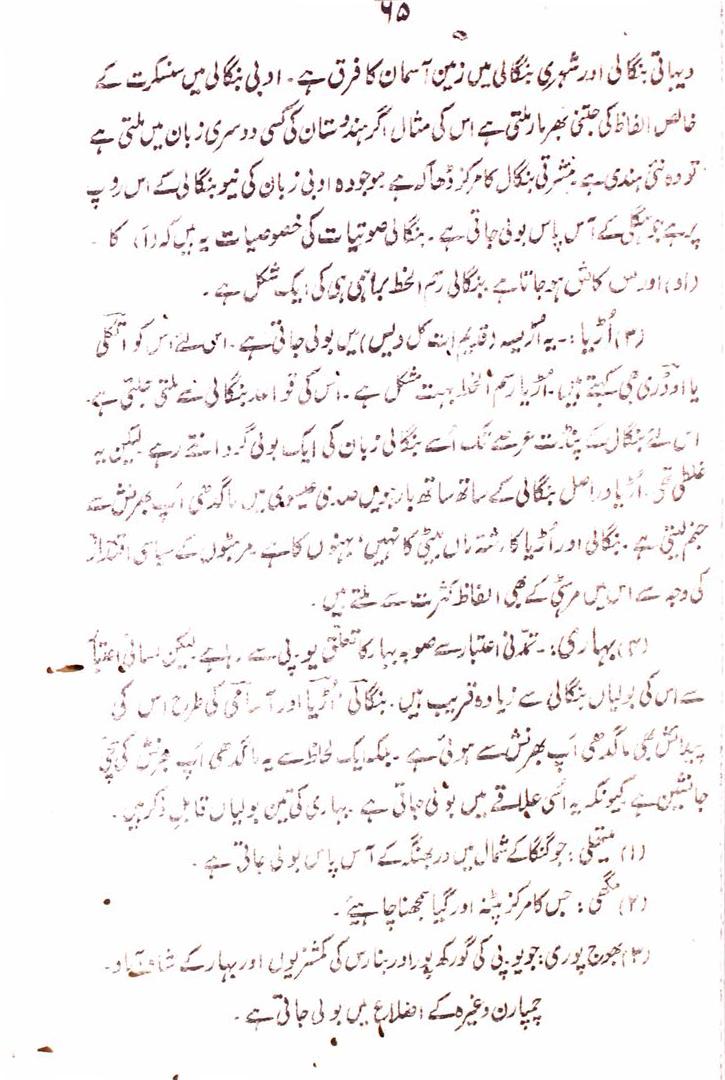 ۶۵
دیہاتی بنگالی اور شہری بنگالی میں زمین آسمان کا فرق ہے۔ ادبی بنگالی میں سنسکرت کے
خالص الفاظ کی جتنی بھر مار ملتی ہے اس کی مثال اگر ہندوستان کی کسی دوسری زبان میں ملتی ہے
تو وہ نئی ہندی ہے مشرقی بنگال کا مرکز ڈھاکہ ہے موجودہ ادبی زبان کی نیو بنگالی کے اس روپ
پر ہے جو ہگلی کے آس پاس بولی جاتی ہے۔ بنگالی صوتیات کی خصوصیات یہ ہیں کہ (ا) کا
(او) اور س کا ش ہو جاتا ہے بنگالی رسم الخط براہمی ہی کی ایک شکل ہے۔
(۳) اُڑیا:۔ یہ اڑیسہ (قدیم اُت کل دیس) میں بولی جاتی ہے۔ اسی لئے اس کو اتکلی
یا اوڈری بھی کہتے ہیں۔ اڑیا رسم الخط بہت مشکل ہے۔ اس کی قواعد بنگالی سے ملتی جلتی ہے۔
اس لئے بنگال کے پنڈت عرصے تک اُسے بنگالی زبان کی ایک بولی گردانتے رہے لیکن یہ
غلطی تھی۔ اُڑیا دراصل بنگالی کے ساتھ ساتھ بارہویں صدی عیسوی میں ماگدھی اپ بھرنش سے
جنم لیتی ہے۔ بنگالی اور اُڑیا کا رشتہ ماں بیٹی کا نہیں، بہنوں کا ہے۔ مرہٹوں کے سیاسی اقتدار
کی وجہ سے اس میں مرہٹی کے بھی الفاظ کثرت سے ملتے ہیں۔
(۴) بہاری:۔ تمدنی اعتبار سے صوبہ بہار کا تعلق یو۔پی سے رہا ہے لیکن لسانی اعتبار
سے اس کی بولیاں بنگالی سے زیادہ قریب ہیں۔ بنگالی، اُڑیا اور آسامی کی طرح اس کی
پیدائش بھی ماگدھی اَپ بھرنش سے ہوئی ہے۔ بلکہ ایک لحاظ سے یہ ماگدھی اَپ بھرنش کی سچی
جانشین ہے کیونکہ یہ اسی علاقے میں بولی جاتی ہے۔ بہاری کی تین بولیاں قابلِ ذکر ہیں۔
(۱) میتھلی: جو گنگا کے شمال میں دربھنگہ کے آس پاس بولی جاتی ہے۔
(۲) مگھی: جس کا مرکز پٹنہ اور گیا سمجھنا چاہیئے۔
(۳) بھوج پوری: جو یو۔پی کی گورکھپور اور بنارس کی کمشنریوں اور بہار کے شاہ آباد۔
چمپارن وغیرہ کے اضلاع میں بولی جاتی ہے۔